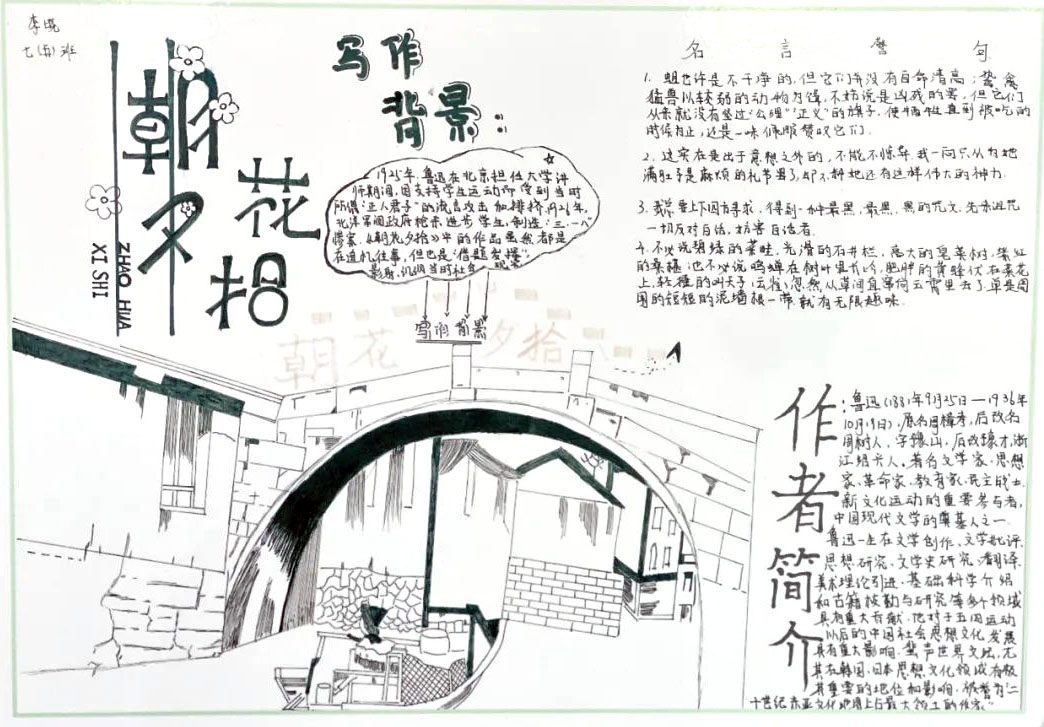 李晓
七(5)班
朝花夕拾
ZHAO HUA
XI SHI
写作
背景：
1925年，鲁迅在北京担任大学讲
师期间，因支持学生运动而受到当时
所谓"正人君子"的流言攻击和排挤，1926年，
北洋军阀政府枪杀进步学生，制造"三·一八"
惨案，《朝花夕拾》中的作品虽然都是
在追忆往事，但也是"借题发挥"
影射、讥讽当时社会
写作背景
朝花夕拾
名言警句
1. 蛆也许是不干净的，但它们并没有自命清高；鸷禽
猛兽以较弱的动物为饵，不妨说是凶残的罢，但它们
从来就没有竖过"公理""正义"的旗子，使牺牲直到被吃的
时候为止，还是一味佩服赞叹它们。
2. 这实在是出于意想之外的，不能不惊异，我一向只以为她
满肚子是麻烦的礼节罢了，却不料她还有这样伟大的神力。
3. 我总要上下四方寻求，得到一种最黑，最黑，黑的咒文，先来诅咒
一切反对白话，妨害白话者。
4. 不必说碧绿的菜畦，光滑的石井栏，高大的皂荚树，紫红
的桑椹；也不必说鸣蝉在树叶里长吟，肥胖的黄蜂伏在菜花
上，轻捷的叫天子(云雀)忽然从草间直窜向云霄里去了，单是周
围的短短的泥墙根一带，就有无限趣味
作者简介
：鲁迅(1881年9月25日—1936年
10月19日)，原名周樟寿，后改名
周树人，字豫山，后改豫才，浙
江绍兴人。著名文学家、思想
家、革命家、教育家、民主战士，
新文化运动的重要参与者，
中国现代文学的奠基人之一。
鲁迅一生在文学创作、文学批评、
思想研究、文学史研究、翻译、
美术理论引进、基础科学介绍
和古籍校勘与研究等多个领域
具有重大贡献。他对于五四运动
以后的中国社会思想文化发展
具有重大影响，蜚声世界文坛，尤
其在韩国、日本思想文化领域有极
其重要的地位和影响，被誉为"二
十世纪东亚文化地图上占最大领土的作家"